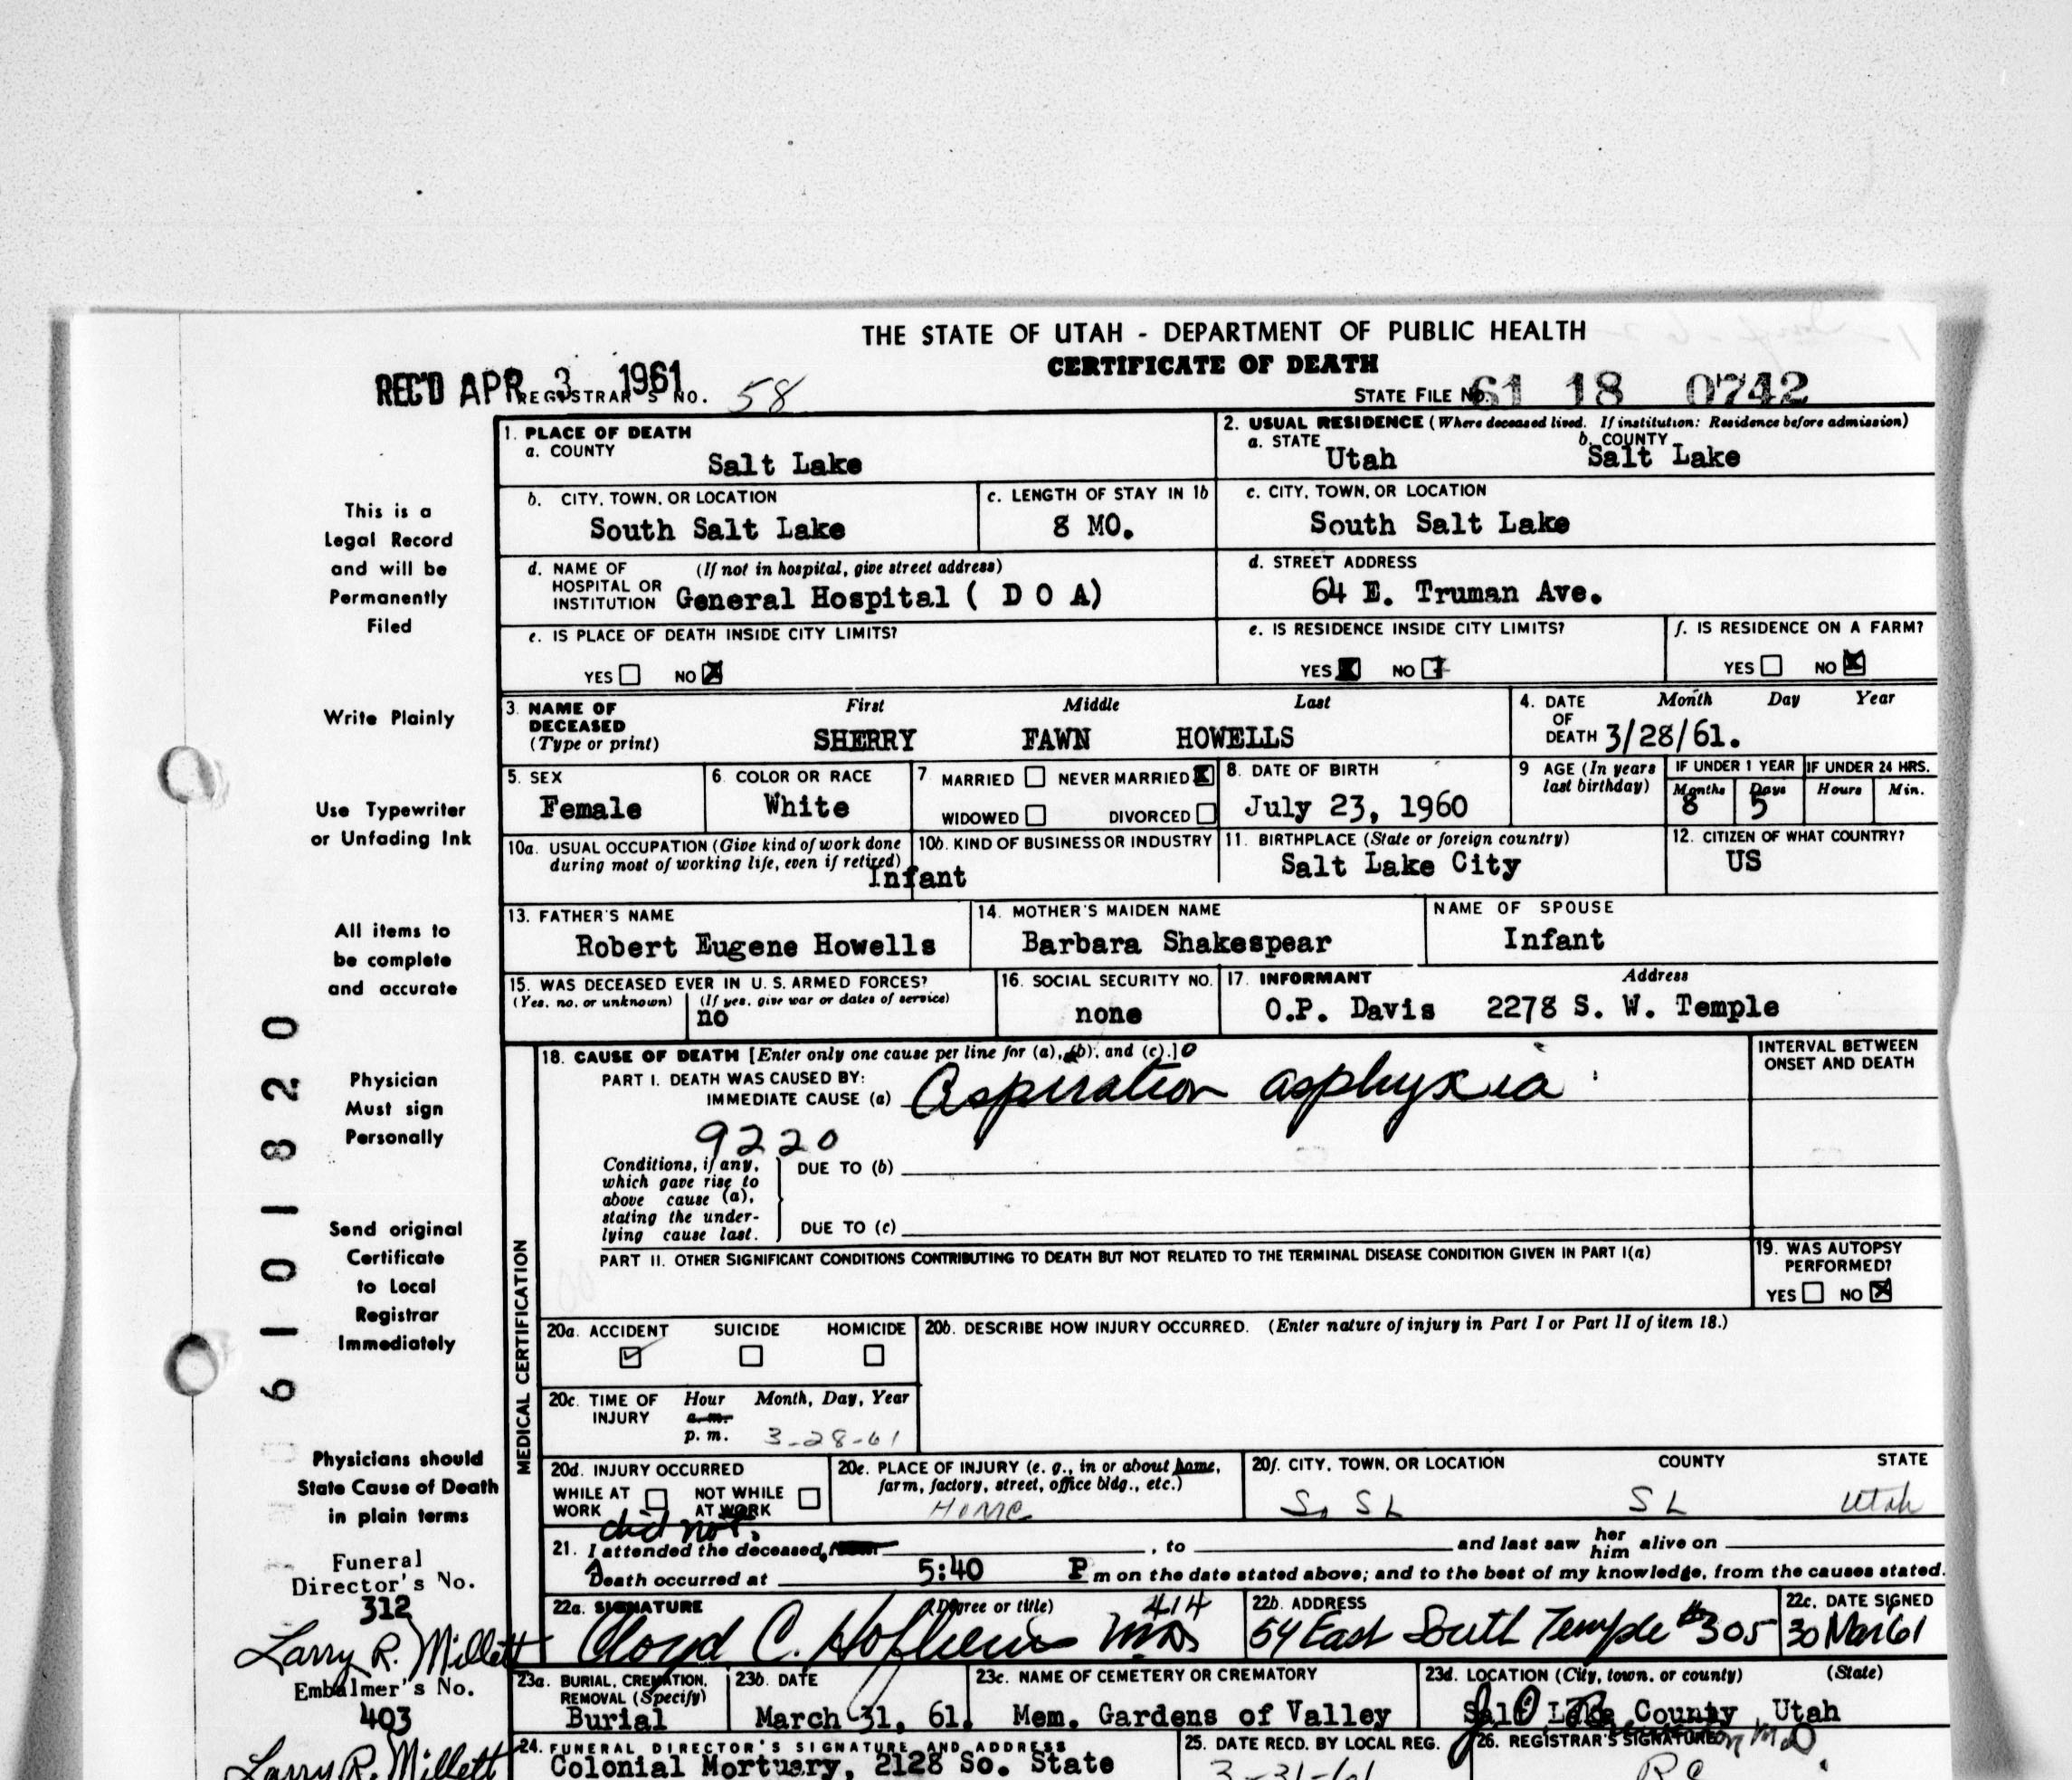 THE STATE OF UTAH - DEPARTMENT OF PUBLIC HEALTH
CERTIFICATE OF DEATH
REC'D APR 3 1961 REGISTRAR'S NO. 58
STATE FILE NO. 61 18 0742
1. PLACE OF DEATH
a. COUNTY
Salt Lake
2. USUAL RESIDENCE (Where deceased lived. If institution: Residence before admission)
a. STATE Utah b. COUNTY Salt Lake
b. CITY, TOWN, OR LOCATION
South Salt Lake
c. LENGTH OF STAY IN 1b
8 MO.
c. CITY, TOWN, OR LOCATION
South Salt Lake
d. NAME OF HOSPITAL OR INSTITUTION (If not in hospital, give street address)
General Hospital ( D O A)
d. STREET ADDRESS
64 E. Truman Ave.
e. IS PLACE OF DEATH INSIDE CITY LIMITS?
YES NO X
e. IS RESIDENCE INSIDE CITY LIMITS?
YES X NO
f. IS RESIDENCE ON A FARM?
YES NO X
3. NAME OF DECEASED (Type or print)
First Middle Last
SHERRY FAWN HOWELLS
4. DATE OF DEATH Month Day Year
3/28/61.
5. SEX
Female
6. COLOR OR RACE
White
7 MARRIED NEVER MARRIED X
WIDOWED DIVORCED
8. DATE OF BIRTH
July 23, 1960
9 AGE (In years last birthday)
IF UNDER 1 YEAR IF UNDER 24 HRS.
Months Days Hours Min.
8 5
10a. USUAL OCCUPATION (Give kind of work done during most of working life, even if retired)
10b. KIND OF BUSINESS OR INDUSTRY
Infant
11. BIRTHPLACE (State or foreign country)
Salt Lake City
12. CITIZEN OF WHAT COUNTRY?
US
13. FATHER'S NAME
Robert Eugene Howells
14. MOTHER'S MAIDEN NAME
Barbara Shakespear
NAME OF SPOUSE
Infant
15. WAS DECEASED EVER IN U. S. ARMED FORCES?
(Yes, no, or unknown) (If yes, give war or dates of service)
no
16. SOCIAL SECURITY NO.
none
17. INFORMANT Address
O.P. Davis 2278 S. W. Temple
MEDICAL CERTIFICATION
18. CAUSE OF DEATH [Enter only one cause per line for (a), (b), and (c).] 0
INTERVAL BETWEEN ONSET AND DEATH
PART I. DEATH WAS CAUSED BY:
IMMEDIATE CAUSE (a) Aspiration asphyxia
9220
Conditions, if any, which gave rise to above cause (a), stating the underlying cause last.
DUE TO (b)
DUE TO (c)
PART II. OTHER SIGNIFICANT CONDITIONS CONTRIBUTING TO DEATH BUT NOT RELATED TO THE TERMINAL DISEASE CONDITION GIVEN IN PART I(a)
19. WAS AUTOPSY PERFORMED?
YES NO X
20a. ACCIDENT SUICIDE HOMICIDE
20b. DESCRIBE HOW INJURY OCCURRED. (Enter nature of injury in Part I or Part II of item 18.)
20c. TIME OF INJURY Hour Month, Day, Year
a. m.
p. m. 3-28-61
20d. INJURY OCCURRED
WHILE AT WORK NOT WHILE AT WORK
20e. PLACE OF INJURY (e. g., in or about home, farm, factory, street, office bldg., etc.)
Home
20f. CITY, TOWN, OR LOCATION COUNTY STATE
S. SL SL Utah
did not
21. I attended the deceased, , to and last saw her him alive on
Death occurred at 5:40 P m on the date stated above; and to the best of my knowledge, from the causes stated.
22a. SIGNATURE (Degree or title) 414
Cloyd C. Hofheins MD
22b. ADDRESS
54 East South Temple #305
22c. DATE SIGNED
30 Mar 61
23a. BURIAL, CREMATION, REMOVAL (Specify)
Burial
23b. DATE
March 31, 61.
23c. NAME OF CEMETERY OR CREMATORY
Mem. Gardens of Valley
23d. LOCATION (City, town, or county) (State)
Salt Lake County Utah
24. FUNERAL DIRECTOR'S SIGNATURE AND ADDRESS
Colonial Mortuary, 2128 So. State
25. DATE RECD. BY LOCAL REG.
3-31-61
26. REGISTRAR'S SIGNATURE
This is a
Legal Record
and will be
Permanently
Filed
Write Plainly
Use Typewriter
or Unfading Ink
All items to
be complete
and accurate
Physician
Must sign
Personally
Send original
Certificate
to Local
Registrar
Immediately
Physicians should
State Cause of Death
in plain terms
Funeral
Director's No.
312
Larry R. Millett
Embalmer's No.
403
Larry R. Millett
6101820